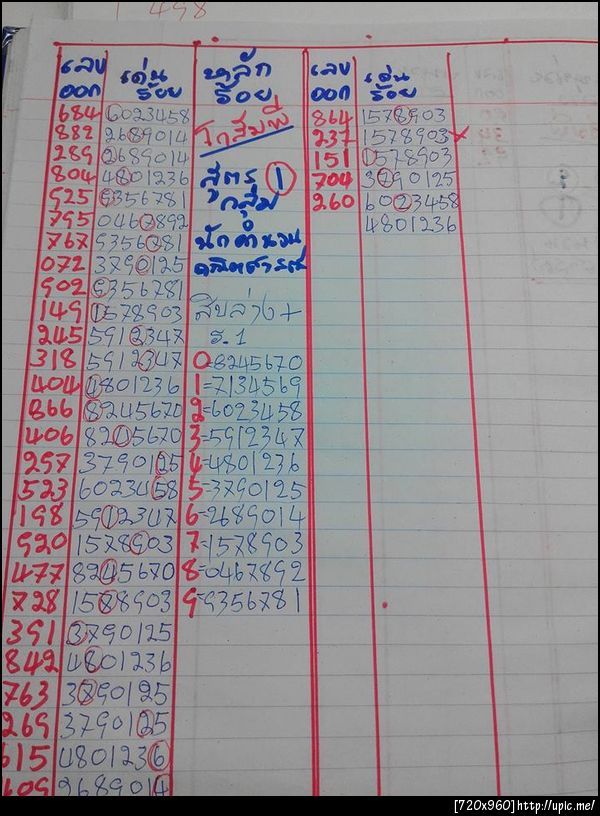 498
เลข
ออก
เด่น
ร้อย
684 6023458
882 2689014
289 2689014
804 4801236
925 9356781
795 0467892
767 9356781
072 3790125
902 9356781
149 1578903
245 5912347
318 5912347
404 4801236
866 8245670
406 8245670
297 3790125
523 6023458
198 5912347
920 1578903
477 8245670
728 1578903
391 3790125
842 4801236
763 3790125
269 3790125
615 4801236
409 2689014
หลัก
ร้อย
โกสัมพี
สูตร 1
กลุ่ม
นักคำนวน
คณิตศาสตร์
สิบล่าง+
ร.1
0=8245670
1=7134569
2=6023458
3=5912347
4=4801236
5=3790125
6=2689014
7=1578903
8=0467892
9=9356781
เลข
ออก
เด่น
ร้อย
864 1578903
237 1578903 x
151 1578903
704 3790125
260 6023458
4801236
[720x960]http://upic.me/